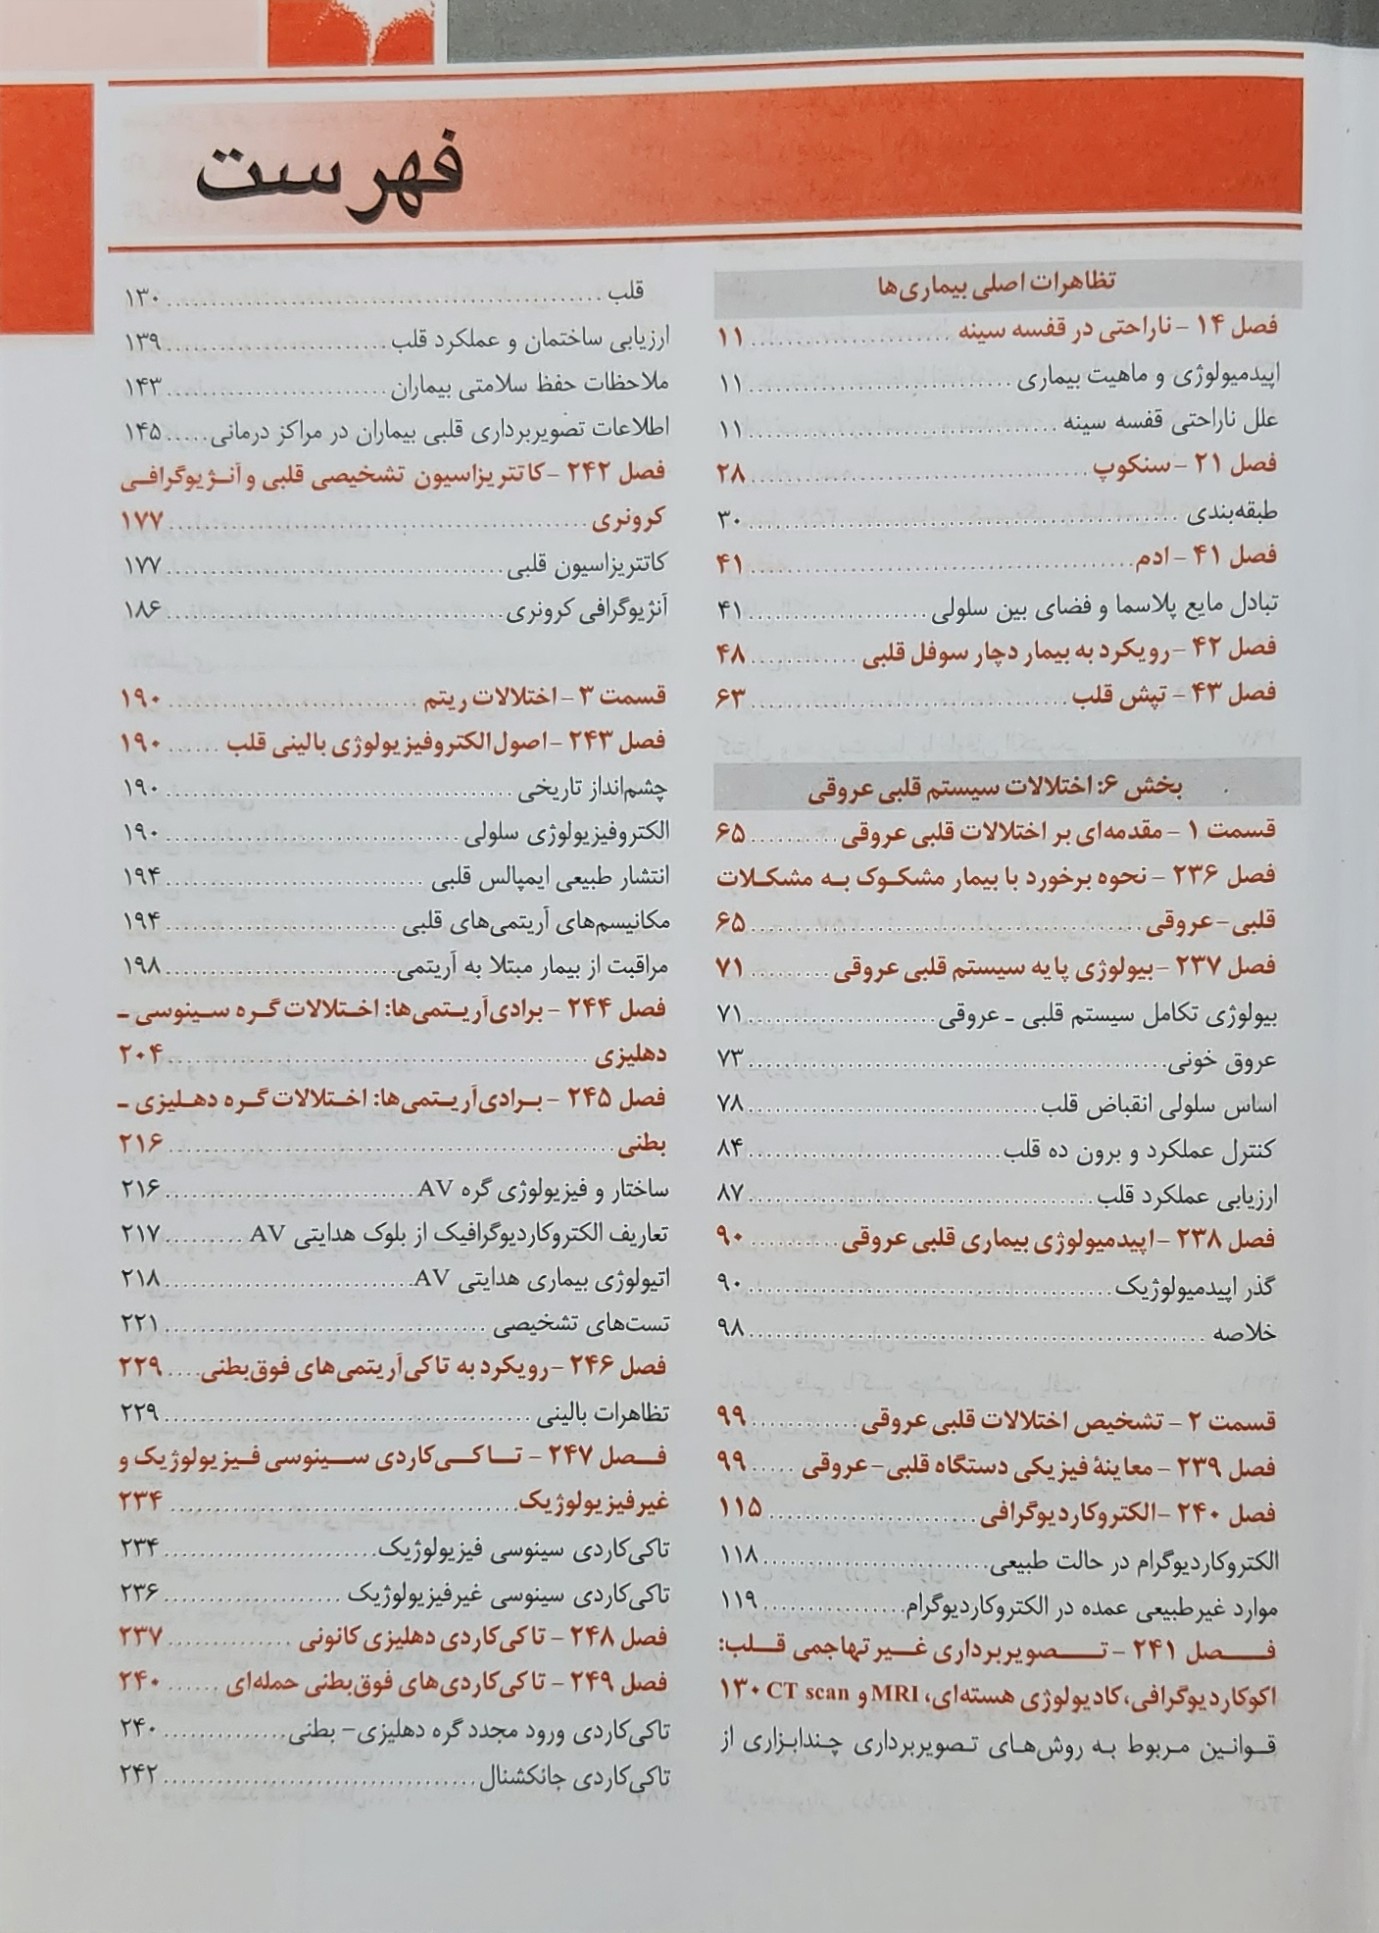 فهرست
تظاهرات اصلی بیماری‌ها
فصل ۱۴ - ناراحتی در قفسه سینه ........ ۱۱
اپیدمیولوژی و ماهیت بیماری ........ ۱۱
علل ناراحتی قفسه سینه ........ ۱۱
فصل ۲۱ - سنکوپ ........ ۲۸
طبقه‌بندی ........ ۳۰
فصل ۴۱ - ادم ........ ۴۱
تبادل مایع پلاسما و فضای بین سلولی ........ ۴۱
فصل ۴۲ - رویکرد به بیمار دچار سوفل قلبی ........ ۴۸
فصل ۴۳ - تپش قلب ........ ۶۳
بخش ۶: اختلالات سیستم قلبی عروقی
قسمت ۱ - مقدمه‌ای بر اختلالات قلبی عروقی ........ ۶۵
فصل ۲۳۶ - نحوه برخورد با بیمار مشکوک به مشکلات
قلبی - عروقی ........ ۶۵
فصل ۲۳۷ - بیولوژی پایه سیستم قلبی عروقی ........ ۷۱
بیولوژی تکامل سیستم قلبی ـ عروقی ........ ۷۱
عروق خونی ........ ۷۳
اساس سلولی انقباض قلب ........ ۷۸
کنترل عملکرد و برون ده قلب ........ ۸۴
ارزیابی عملکرد قلب ........ ۸۷
فصل ۲۳۸ - اپیدمیولوژی بیماری قلبی عروقی ........ ۹۰
گذر اپیدمیولوژیک ........ ۹۰
خلاصه ........ ۹۸
قسمت ۲ - تشخیص اختلالات قلبی عروقی ........ ۹۹
فصل ۲۳۹ - معاینهٔ فیزیکی دستگاه قلبی - عروقی ..... ۹۹
فصل ۲۴۰ - الکتروکاردیوگرافی ........ ۱۱۵
الکتروکاردیوگرام در حالت طبیعی ........ ۱۱۸
موارد غیرطبیعی عمده در الکتروکاردیوگرام ........ ۱۱۹
فصل ۲۴۱ - تصویربرداری غیرتهاجمی قلب:
اکوکاردیوگرافی، کادیولوژی هسته‌ای، MRI و CT scan ۱۳۰
قوانین مربوط به روش‌های تصویربرداری چندابزاری از
قلب ........ ۱۳۰
ارزیابی ساختمان و عملکرد قلب ........ ۱۳۹
ملاحظات حفظ سلامتی بیماران ........ ۱۴۳
اطلاعات تصویربرداری قلبی بیماران در مراکز درمانی ..... ۱۴۵
فصل ۲۴۲ - کاتتریزاسیون تشخیصی قلبی و آنژیوگرافی
کرونری ........ ۱۷۷
کاتتریزاسیون قلبی ........ ۱۷۷
آنژیوگرافی کرونری ........ ۱۸۶
قسمت ۳ - اختلالات ریتم ........ ۱۹۰
فصل ۲۴۳ - اصول الکتروفیزیولوژی بالینی قلب ...... ۱۹۰
چشم‌انداز تاریخی ........ ۱۹۰
الکتروفیزیولوژی سلولی ........ ۱۹۰
انتشار طبیعی ایمپالس قلبی ........ ۱۹۴
مکانیسم‌های آریتمی‌های قلبی ........ ۱۹۴
مراقبت از بیمار مبتلا به آریتمی ........ ۱۹۸
فصل ۲۴۴ - برادی‌آریتمی‌ها: اختلالات گره سینوسی ـ
دهلیزی ........ ۲۰۴
فصل ۲۴۵ - برادی‌آریتمی‌ها: اختلالات گره دهلیزی ـ
بطنی ........ ۲۱۶
ساختار و فیزیولوژی گره AV ........ ۲۱۶
تعاریف الکتروکاردیوگرافیک از بلوک هدایتی AV ........ ۲۱۷
اتیولوژی بیماری هدایتی AV ........ ۲۱۸
تست‌های تشخیصی ........ ۲۲۱
فصل ۲۴۶ - رویکرد به تاکی‌آریتمی‌های فوق‌بطنی .... ۲۲۹
تظاهرات بالینی ........ ۲۲۹
فصل ۲۴۷ - تاکی‌کاردی سینوسی فیزیولوژیک و
غیرفیزیولوژیک ........ ۲۳۴
تاکی‌کاردی سینوسی فیزیولوژیک ........ ۲۳۴
تاکی‌کاردی سینوسی غیرفیزیولوژیک ........ ۲۳۶
فصل ۲۴۸ - تاکی‌کاردی دهلیزی کانونی ........ ۲۳۷
فصل ۲۴۹ - تاکی‌کاردی‌های فوق‌بطنی حمله‌ای ...... ۲۴۰
تاکی‌کاردی ورود مجدد گره دهلیزی - بطنی ........ ۲۴۰
تاکی‌کاردی جانکشنال ........ ۲۴۲